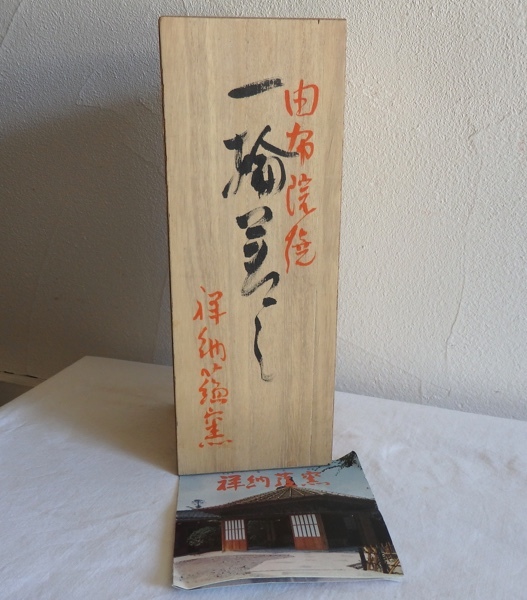 由布院焼
一輪差し
祥納 窯
祥納 窯